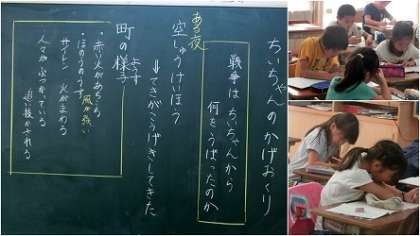 ちいちゃんのかげおくり
戦争は、ちいちゃんから
何をうばったのか
ある夜
空しゅうけいほう
↓てきがこうげきしてきた
町の様子
ようす
・赤い火があちこち
・ほのおのうず 風が熱い
・サイレン 火がまわる
人々がぶつかっている
追い抜かされる